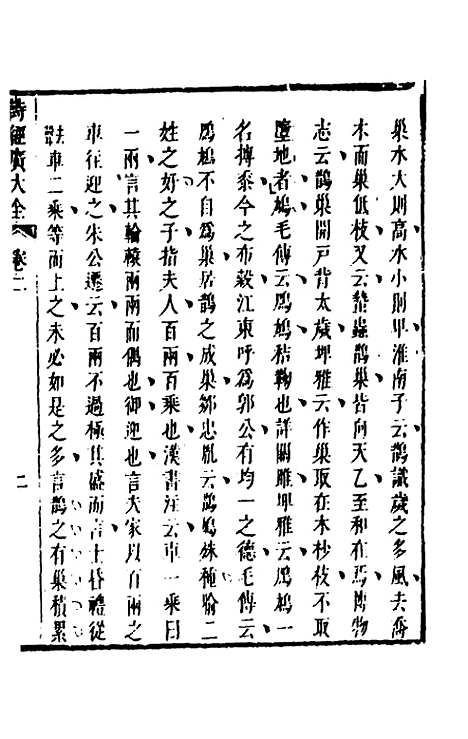 巢水大則高水小則卑淮南子云鵲識歲之多風去喬
木而巢低枝又云蟄蟲鵲巢皆向天乙至和在焉博物
志云鵲巢開戸背太歲埤雅云作巢取在木杪枝不取
墮地者鳲毛傳云鳲鳩秸鞠也詳關雎埤雅云鳲鳩一
名摶黍今之布穀江東呼爲郭公有均一之德毛傳云
鳲鳩不自爲巢居鵲之成巢鄒忠胤云鵲鳩殊種喻二
姓之好之子指夫人百兩百乘也漢書注云車一乘曰
一兩言其輪轅兩兩而偶也御迎也言夫家以百兩之
車往迎之朱公遷云百兩不過極其盛而言士昏禮從
車二乘等而上之未必如是之多言鵲之有巢積累
詩經廣大全 卷二 二